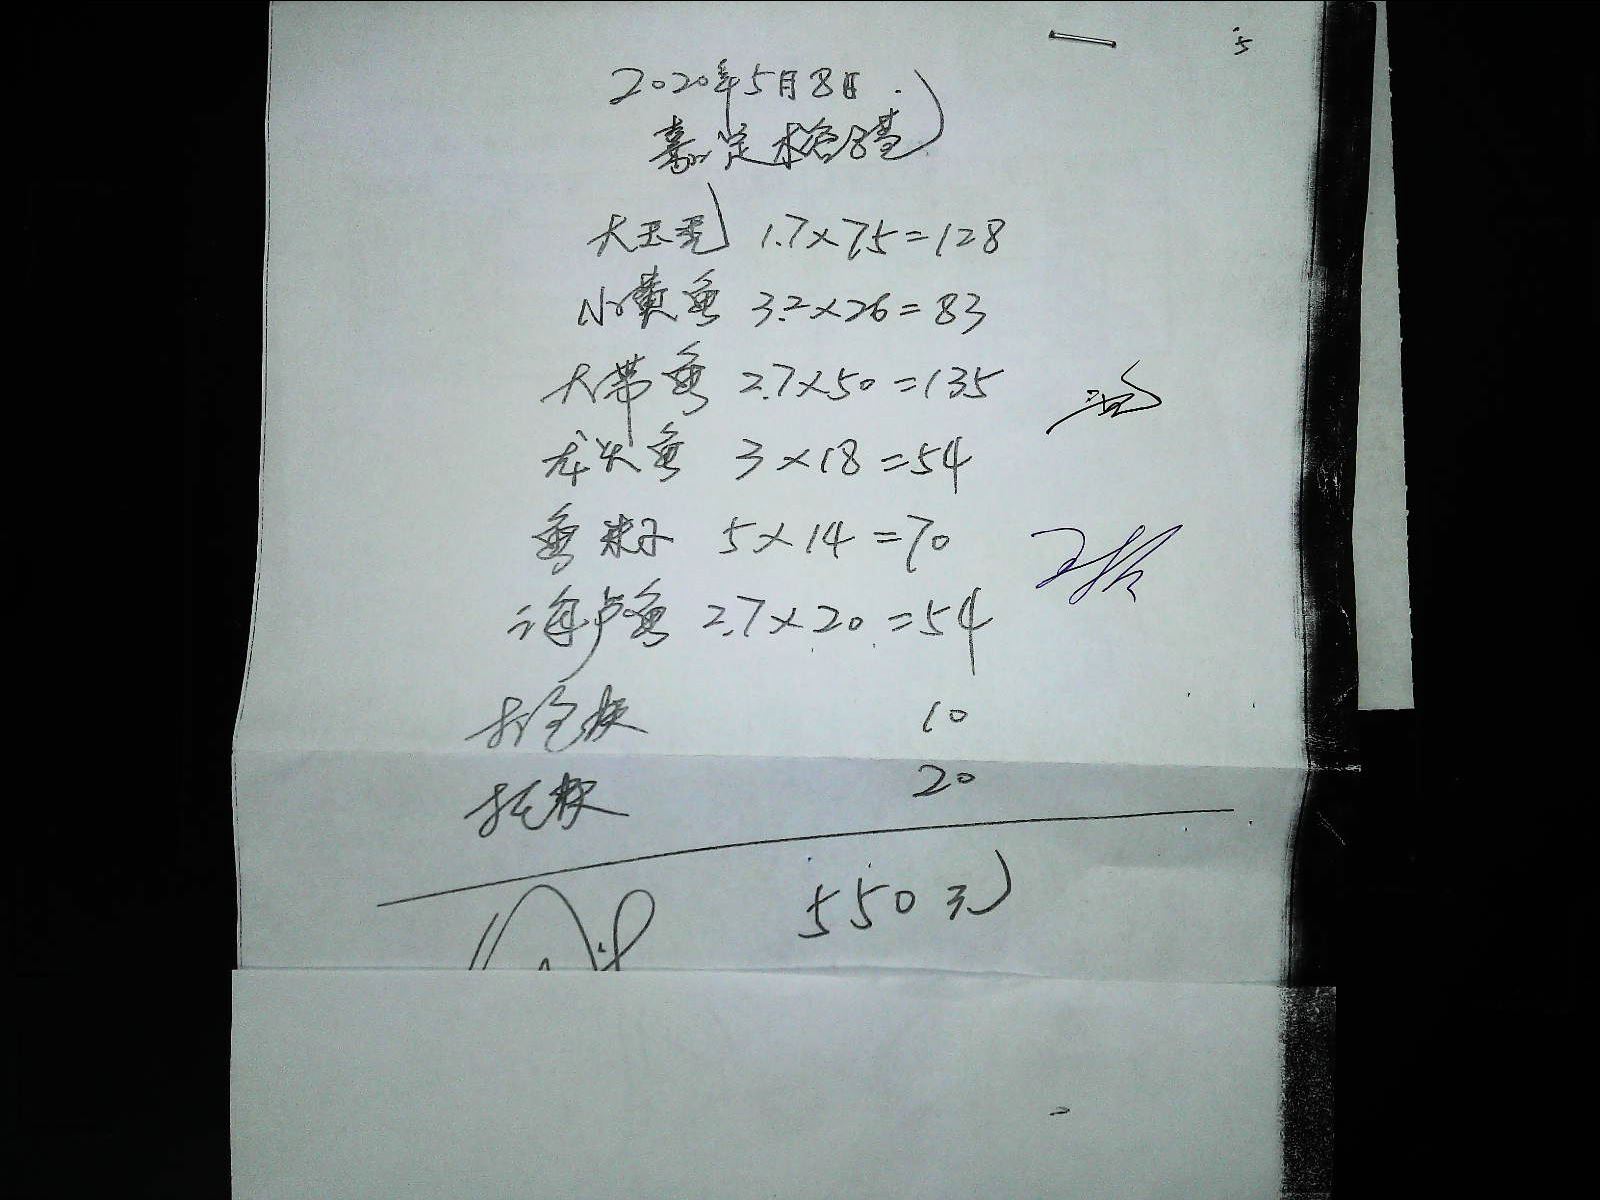 5
2020年5月8日
嘉定
大玉秃 1.7×75=128
小黄鱼 3.2×26=83
大带鱼 2.7×50=135
龙头鱼 3×18=54
鱼 5×14=70
海卢鱼 2.7×20=54
10
20
550元